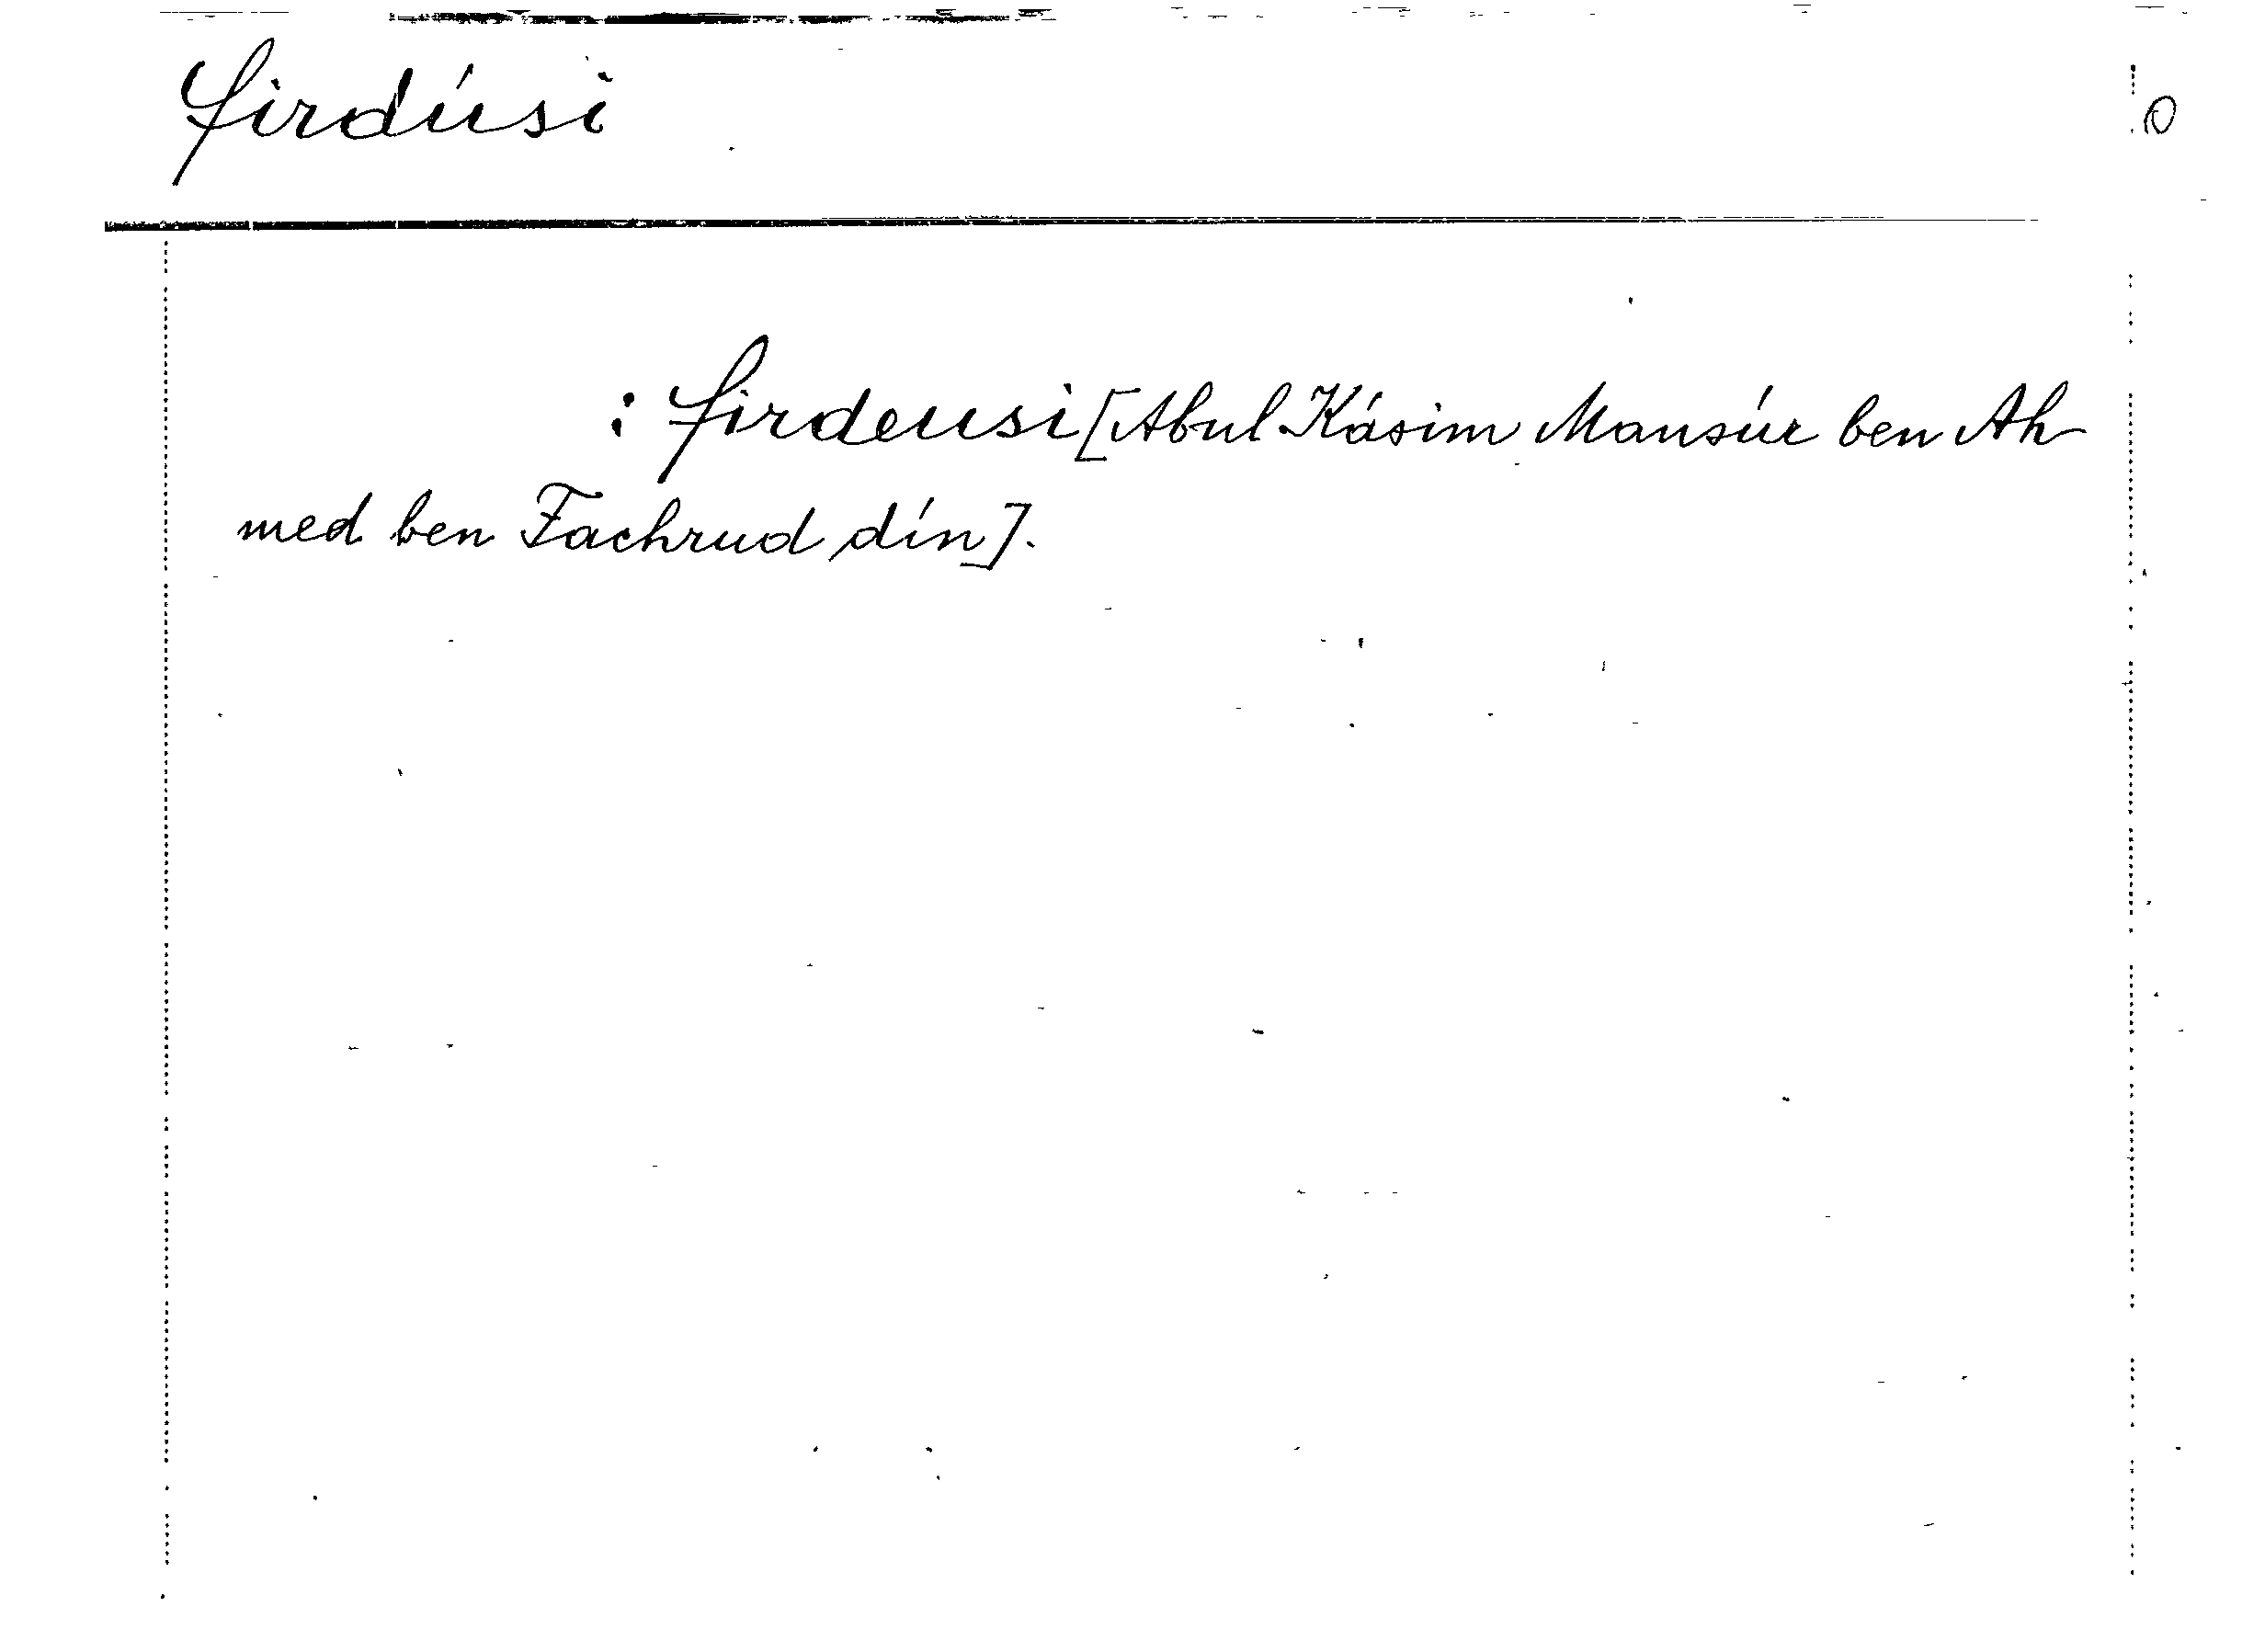 Firdúsi
O
: Firdeusi [Abul Kásim Mansúr ben Ah
med ben Fachrud dín].